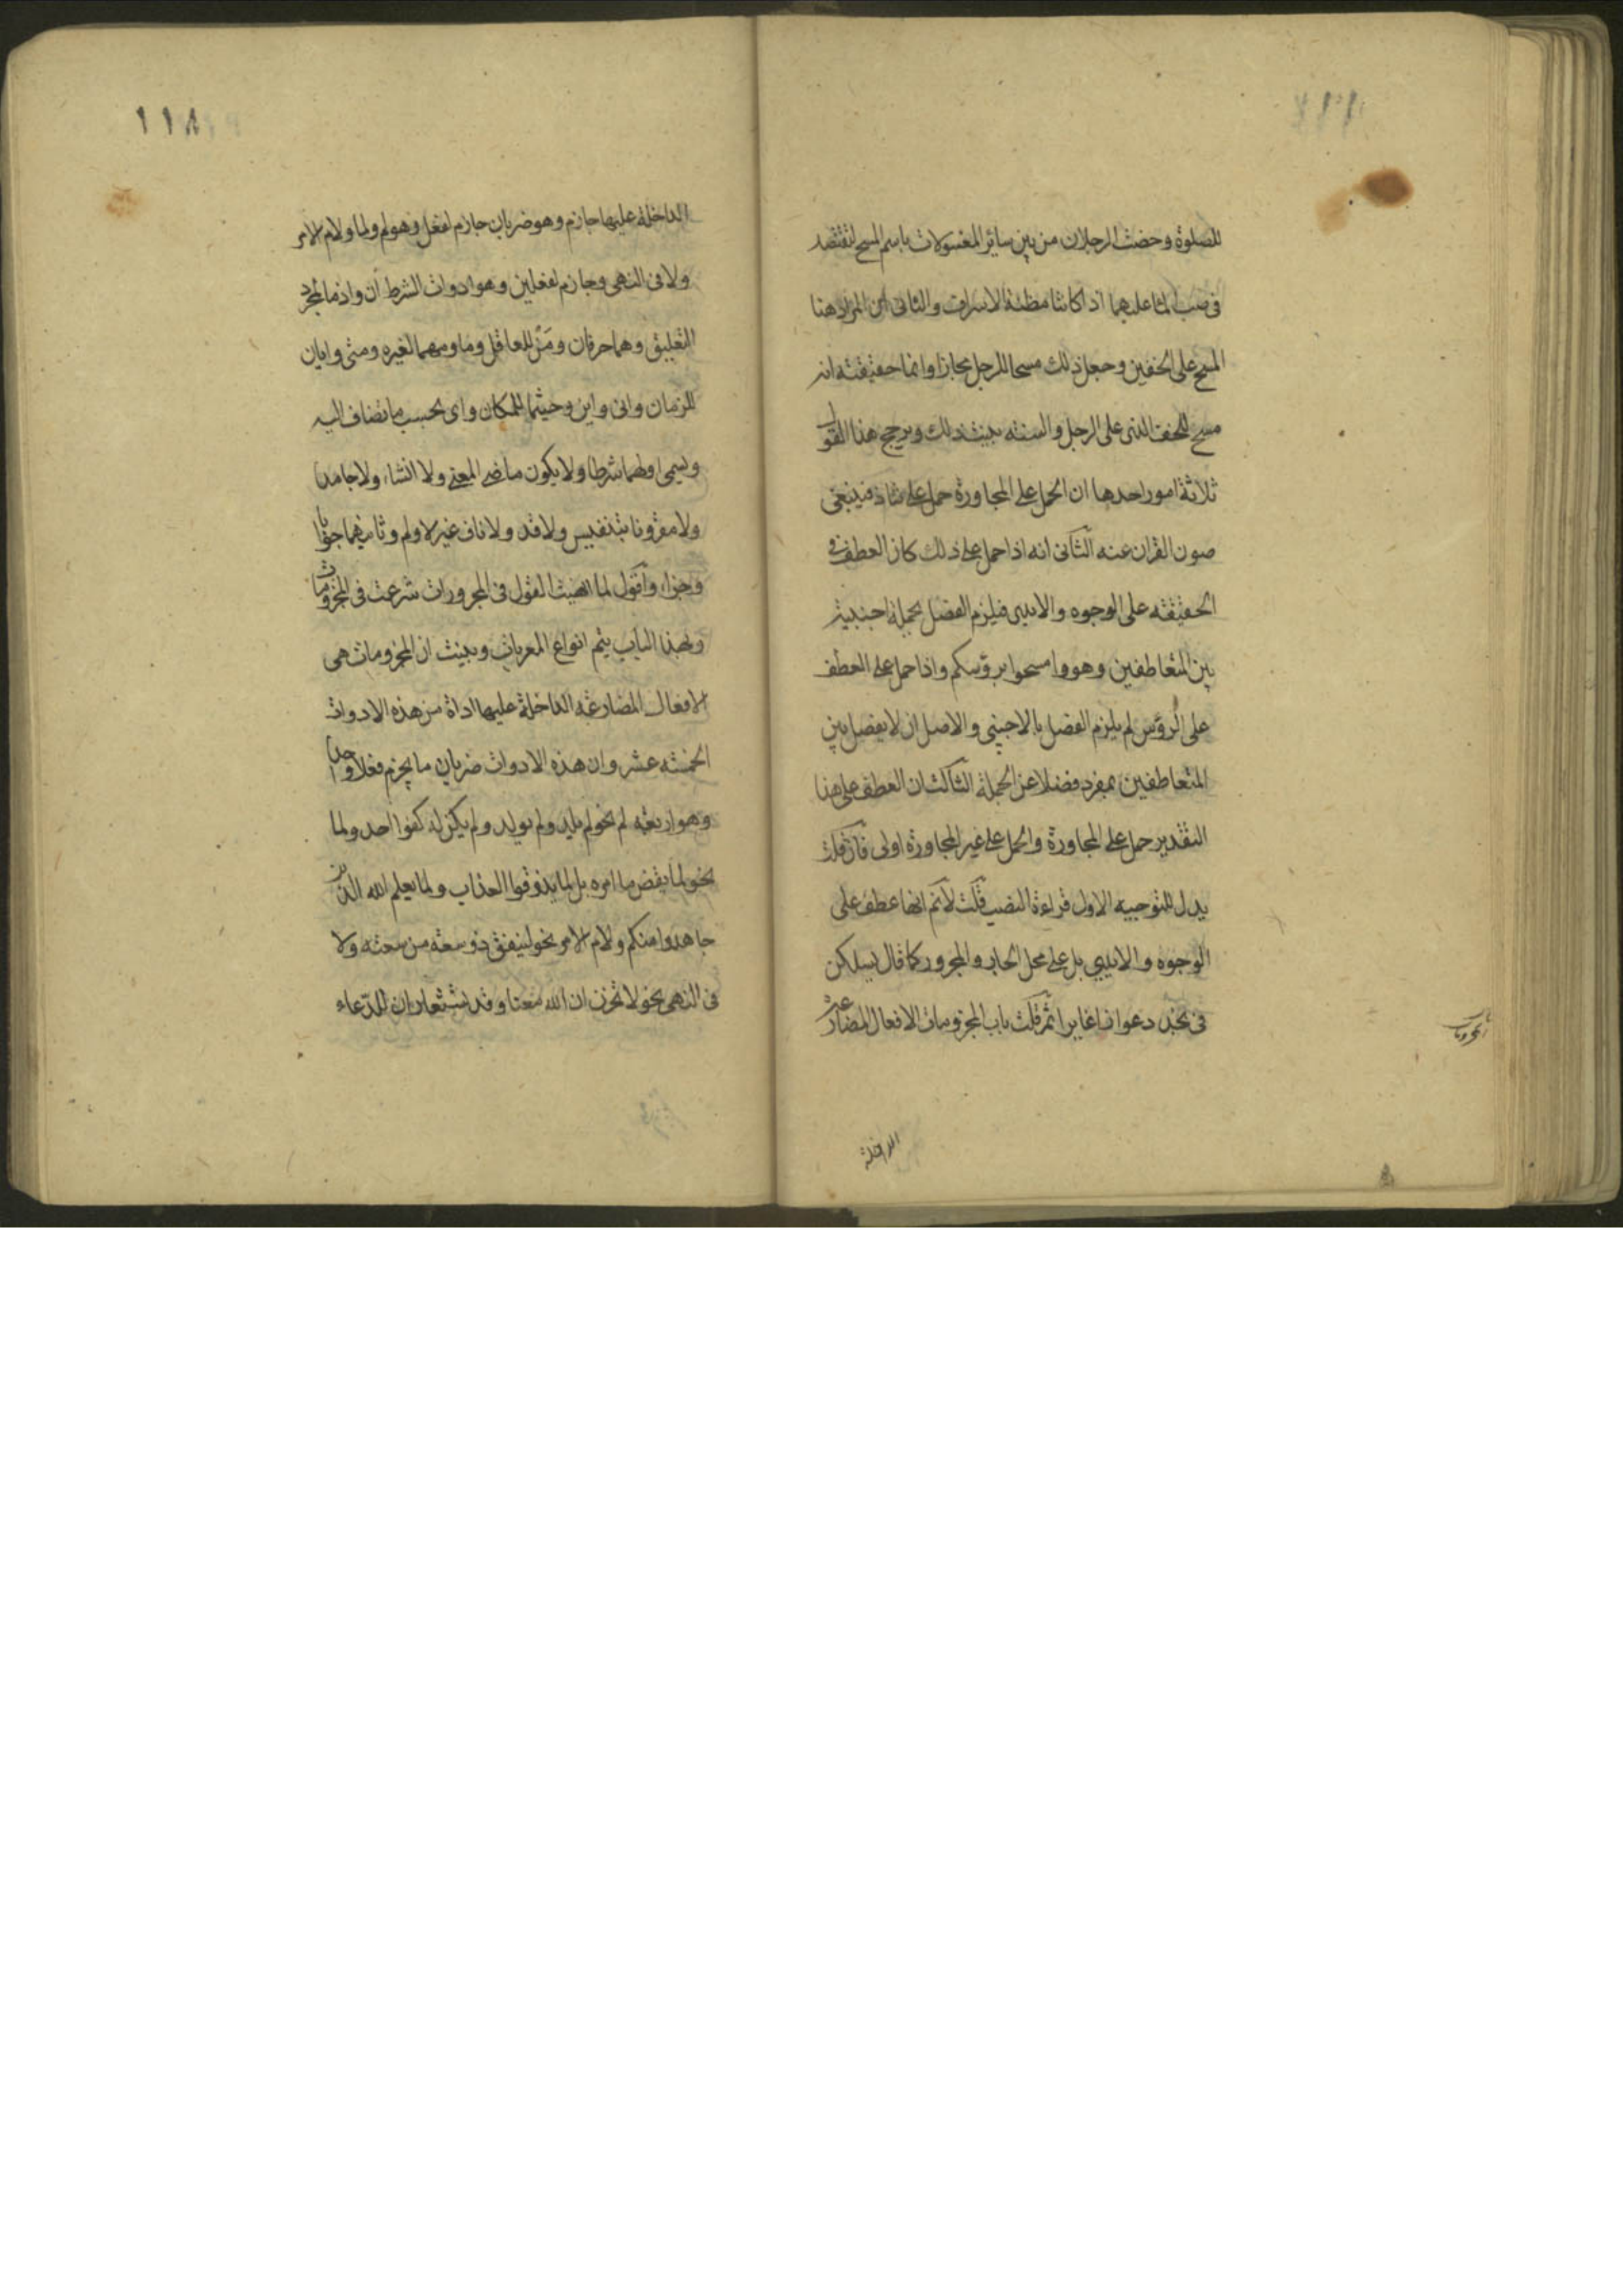 للصلوة وخصت الرجلان من بين سائر المغسولات باسم المسح لتقتصد
فى صب الماء عليهما اذ كانتا مظنة الاسراف والثانى ان المراد هنا
المسح على الخفين وجعل ذلك مسحا للرجل مجازا وانما حقيقته انه
مسح للخف الذى على الرجل والسنة بينت ذلك ويرجح هذا القول
ثلاثة امور احدها ان الحمل على المجاورة حمل على شاذ فينبغى
صون القران عنه الثانى انه اذا حمل على ذلك كان العطف فى
الحقيقة على الوجوه والايدى فيلزم الفصل بجملة اجنبية
بين المتعاطفين وهو وامسحوا برؤسكم واذا حمل على العطف
على الرؤس لم يلزم الفصل بالاجنبى والاصل ان لا يفصل بين
المتعاطفين بمفرد فضلا عن الجملة الثالث ان العطف على هذا
التقدير حمل على المجاورة والحمل على غير المجاورة اولى فان قلت
يدل للتوجيه الاول قراءة النصب قلت لا نم انها عطف على
الوجوه والايدى بل على محل الجار والمجرور كما قال يسلكن
فى نجد دعوا غايرا ثم قلت باب المجزومات الافعال المضارعة
الداخلة
١١٨
الداخلة عليها جازم وهو ضربان جازم لفعل وهو لم ولما ولام الامر
ولا فى النهى وجازم لفعلين وهو ادوات الشرط ان واذما لمجرد
التعليق وهما حرفان ومن للعاقل وما ومهما لغيره ومتى وايان
للزمان وانى واين وحيثما للمكان واى بحسب ما تضاف اليه
ويسمى اولهما شرطا ولا يكون ماضى المعنى ولا انشاء ولا جامدا
ولا مقرونا بتنفيس ولا قد ولا ناف غير لا ولم وثانيهما جوابا
وجزاء واقول لما انهيت القول فى المجرورات شرعت فى المجزومات
وبهذا الباب يتم انواع المعربات وبينت ان المجزومات هى
الافعال المضارعة الداخلة عليها اداة من هذه الادوات
الخمسة عشر وان هذه الادوات ضربان ما يجزم فعلا واحدا
وهو اربعة لم نحو لم يلد ولم يولد ولم يكن له كفوا احد ولما
نحو لما يقض ما امره بل لما يذوقوا العذاب ولما يعلم الله الذين
جاهدوا منكم ولام الامر نحو لينفق ذو سعة من سعته ولا
فى النهى نحو لا تحزن ان الله معنا وقد يستعاران للدعاء